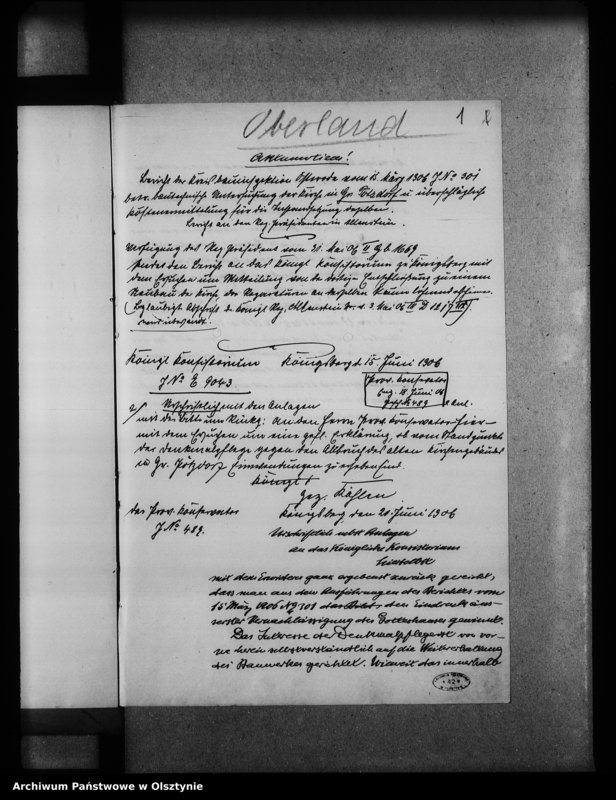 Oberland
1
Aktennotiz!
Bericht der Kreisbauinspektion Osterode vom 15. März 1906 J No 301
betr. bautechnische Untersuchung der Kirche in Gr. Pötzdorf u. überschlägliche
Kostenermittelung für die Instandsetzung derselben.
Bericht an den Reg. Präsidenten in Allenstein.
Verfügung des Reg. Präsidenten vom 31. Mai 06 II
sendet den Bericht an das Königl. Konsistorium zu Königsberg mit
dem Ersuchen um Mitteilung von der Entschließung zu einem
Neubau der Kirche, da Reparaturen an derselben kaum lohnend
Beglaubigte Abschrift d. Königl. Reg. Allenstein v. 3. Mai 06
Königl. Konsistorium Königsberg d. 15 Juni 1906
J No E 9043
Prov. Konservator
eing. 18 Juni 06
No 489 Anl.
Urschriftlich mit den Anlagen
mit der Bitte um Rückg. an den Herrn Prov. Konservator hier-
mit dem Ersuchen um eine gefl. Erklärung, ob vom Standpunkte
der Denkmalpflege gegen den Abbruch des alten Kirchengebäudes
in Gr. Pötzdorf Einwendungen zu erheben sind.
Königl.
Gez. Köhlen
der Prov. Konservator Königsberg, den 20 Juni 1906
J No 489. Urschriftlich nebst Anlagen
an das Königliche Konsistorium
hierselbst
mit dem Erwidern ganz ergebenst zurück gereicht,
dass man aus den Ausführungen des Berichtes vom
15 März 1906 No 301 den Eindruck äus-
serster Vernachlässigung des Gotteshauses gewinnt.
Das Interesse der Denkmalpflege ist von vor-
ne herein selbstverständlich auf die Weitererhaltung
des Bauwerkes gerichtet. Wieweit das innerhalb
Archiwum Państwowe w Olsztynie